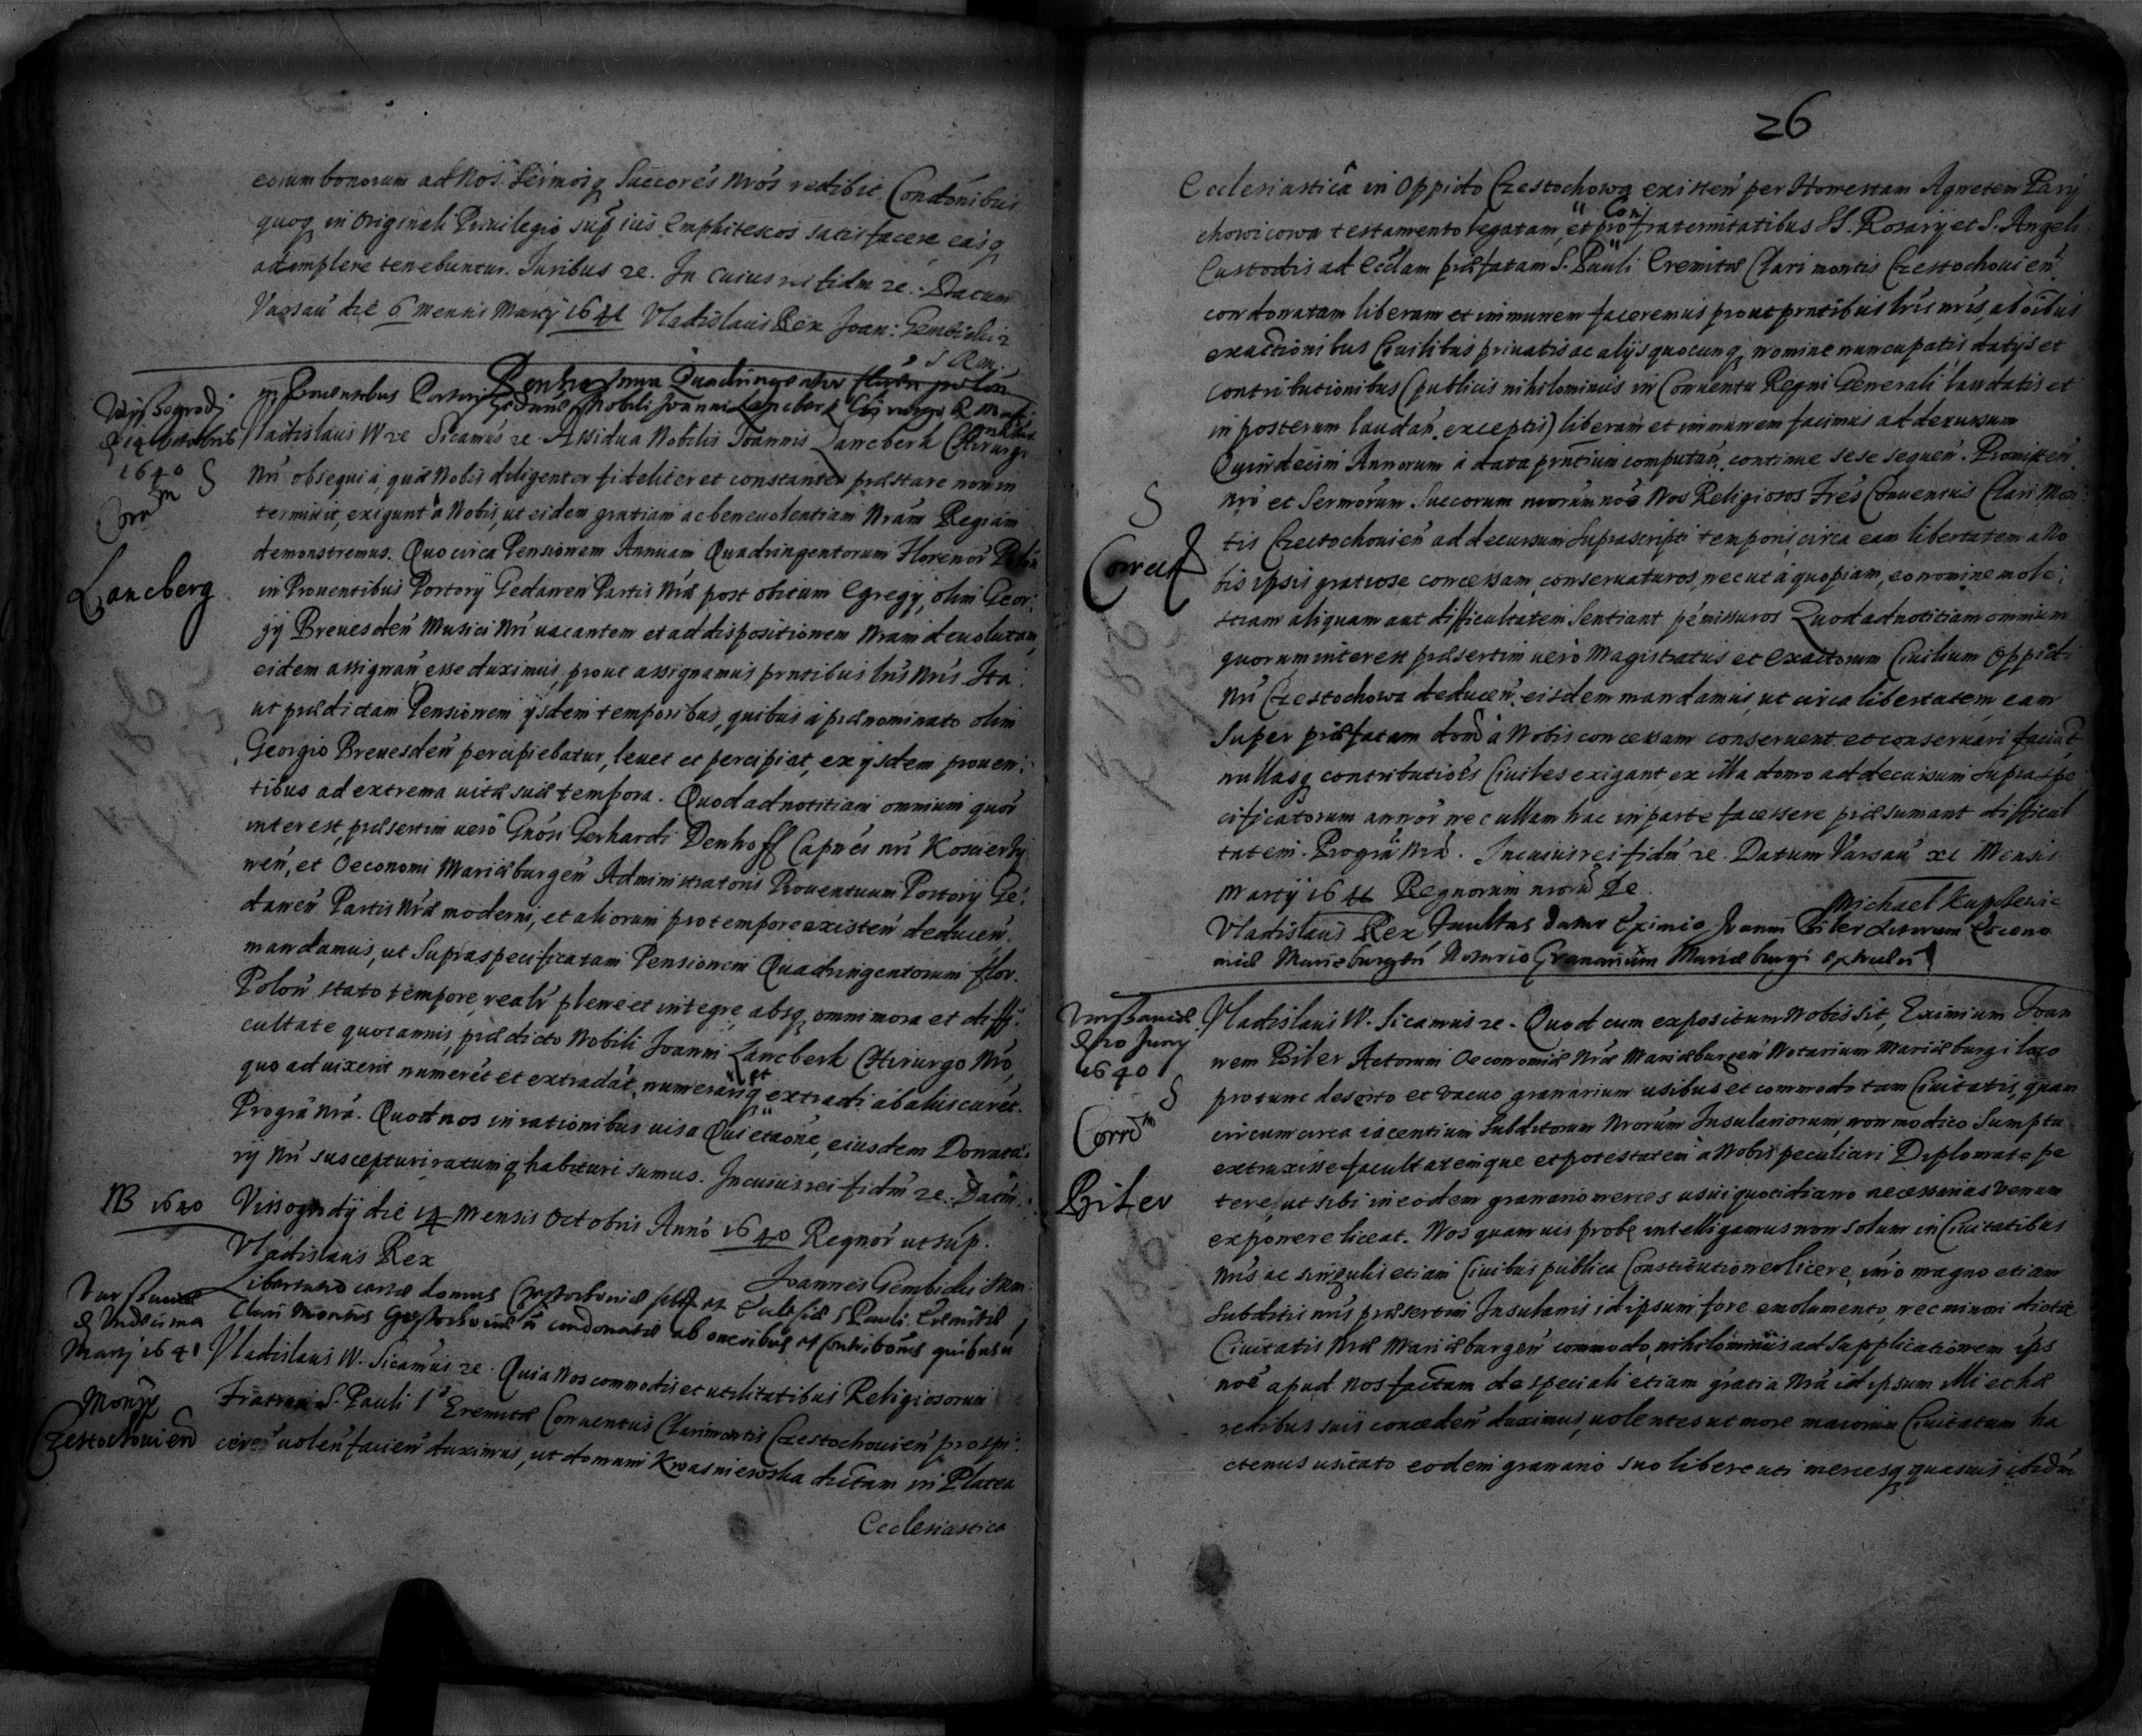 eorum bonorum ad Nos Sermosq Succores Nros redibit. Condonibus
quoq in Originali Priuilegio sup ius Emphiteoos satisfacere, easq
adimplere tenebuntur. Juribus 2e. In cuius rei fidm 2e. Datum
Varsau die 6 Mensis Marty 1641 Vladislaus Rex Joan: Gembicki
S R M.
Pensio Annua Quadringentor floren polon
in Prouentibus Portorij Gedanen Nobili Joanni Lancberk Chirurgo R Mtis
Wyszogrodj
d 14 octobris
1640 S
Corrm
Lancberg
Vladislaus IV 2e Sicamus 2e Assidua Nobilis Joannis Lancberk Chirurgi
Nri obsequia, quæ Nobis diligenter fideliter et constanter præstare non in
termittit, exigunt a Nobis, ut eidem gratiam ac beneuolentiam Nram Regiam
demonstremus. Quocirca Pensionem Annuam Quadringentorum Florenor Polon
in Prouentibus Portorij Gedanen Partis Nræ post obitum Egregij, olim Geor:
gij Breuesden Musici Nri uacantem et ad dispositionem Nram deuolutam,
eidem assignan esse duximus, prout assignamus prntibus lris Nris. Ita
ut prædictam Pensionem ijsdem temporibus, quibus à prænominato olim
Georgio Breuesden percipiebatur, leuet et percipiat, ex ijsdem prouen:
tibus ad extrema uitæ suæ tempora. Quod ad notitiam omnium quor
interest, præsertim uero Gnosi Gerhardi Denhoff Capnei nri Koscierzy
nen, et Oeconomi Mariæburgen Administratoris Prouentuum Portorij Ge:
danen Partis Nræ moderni, et aliorum pro tempore existen deducen.
mandamus, ut supraspecificatam Pensionem Quadringentorum flor.
Polon stato tempore, realr plene et integre, absq omni mora et diffi:
cultate quotannis, prædicto Nobili Joanni Lancberk Chirurgo Nro,
quoad uixerit numeret et extradat, numerariq et extradi ab aliis curet.
Progra Nra. Quod nos in rationibus uisa Quietaone, eiusdem Donata:
rij Nri suscepturi ratumq habituri sumus. In cuius rei fidm 2e. Datm
NB 1640
Vissogrodij die 14 Mensis Octobris Anno 1640 Regnor ut sup.
Vladislaus Rex
Joannes Gembicki
Varsauiæ
d Vndecima
Martij 1641
Montis
Czestochouien
Libertatio certæ domus Czestochouiæ sitæ et Ecclesiæ S Pauli Eremitæ
Clari Montis Czestochouien condonatæ ab oneribus et Contribonis quibusu
Vladislaus IV. Sicamus 2e. Quia Nos commodis et utilitatibus Religiosorum
Fratrum S. Pauli 1i Eremitæ Conuentus Clarimontis Czestochouien prospi:
cere uolen facien duximus, ut domum Kwasniewska dictam in Platea
Ecclesiastica
26
Ecclesiastica in Oppido Czestochowa existen per Honestam Agnetem Pary
chowicowa testamento legatam, et pro Confraternitatibus SS. Rosarij et S. Angeli
Custodis ad Ecclam præfatam S. Pauli Eremitæ Clari montis Czestochouien
condonatam liberam et immunem faceremus prout prntibus lris nris, ab oibus
exactionibus Ciuilibus priuatis ac alijs quocunq nomine nuncupatis, datijs et
contributionibus (publicis nihilominus in Conuentu Regni Generali laudatis et
in posterum laudan exceptis) liberam et immunem facimus ad decursum
Quindecim Annorum a data prntium computan continue sese sequen. Promitten
nro et Sermorum Succorum nrorum noe Nos Religiosos Fres Conuentus Clari Mon:
S
Correct
tis Czestochouien ad decursum suprascripti temporis, circa eam libertatem a No
bis ipsis gratiose concessam, conseruaturos, nec ut à quopiam, eo nomine mole:
stiam aliquam aut difficultatem sentiant permissuros. Quod ad notitiam omnium
quorum interest præsertim uero Magistratus et Exactorum Ciuilium Oppidi
Nri Czestochowa deducen. eisdem mandamus, ut circa libertatem eam
super præfatam domu à Nobis concessam conseruent et conseruari faciat
nullasq contributioes Ciuiles exigant ex illa domo ad decursum supraspe
cificatorum annor nec ullam hac in parte facessere præsumant difficul
tatem. Progra Nra. In cuius rei fidm 2e. Datum Varsau xi Mensis
Martij 1641 Regnorum nrorum 2e.
Michael
Vladislaus Rex Facultas datur Eximio Joanni Biler Actorum Oecono
miæ Mariæburgen Notario Granarium Mariæburgi
Varsauiæ
d 20 Juny
1640
S
Corrm
Biler
Vladislaus IV. Sicamus 2e. Quod cum expositum Nobis sit, Eximium Joan
nem Biler Actorum Oeconomiæ Nræ Mariæburgen Notarium Mariæburgi loco
pro tunc deserto et vacuo granarium usibus et commodo tam Ciuitatis, quam
circumcirca iacentium subditorum Nrorum Insulaniorum, non modico sumptu
extruxisse facultatemque et potestatem à Nobis peculiari Diplomate pe
tere, ut sibi in eodem granario merces usui quotidiano necessarias venum
exponere liceat. Nos quamuis probe intelligamus non solum in Ciuitatibus
Nris ac singulis etiam Ciuibus publica Constitutione licere, imo magno etiam
Subditis nris præsertim Insulanis id ipsum fore emolumento, nec minori dictæ
Ciuitatis Nræ Mariæburgen commodo, nihilominus ad supplicationem ips
noe apud Nos factam de speciali etiam gratia Nra id ipsum illi et hæ
redibus suis conceden duximus, uolentes ut more maiorum Ciuitatum ha
ctenus usitato eodem granario suo libere uti mercesq quasuis ibidm